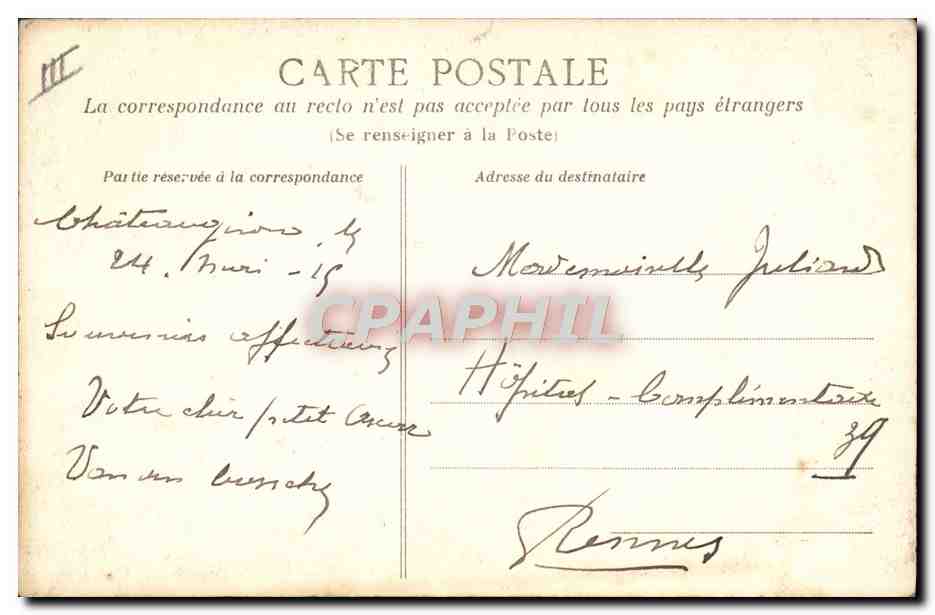 III
CARTE POSTALE
La correspondance au recto n'est pas acceptée par tous les pays étrangers
(Se renseigner à la Poste)
Partie réservée à la correspondance
Adresse du destinataire
Châteaugiron, le
24. - 15
Souvenirs affectueux
Votre cher petit
Mademoiselle Juliard
Hôpital - Complémentaire
39
Rennes
CPAPHIL